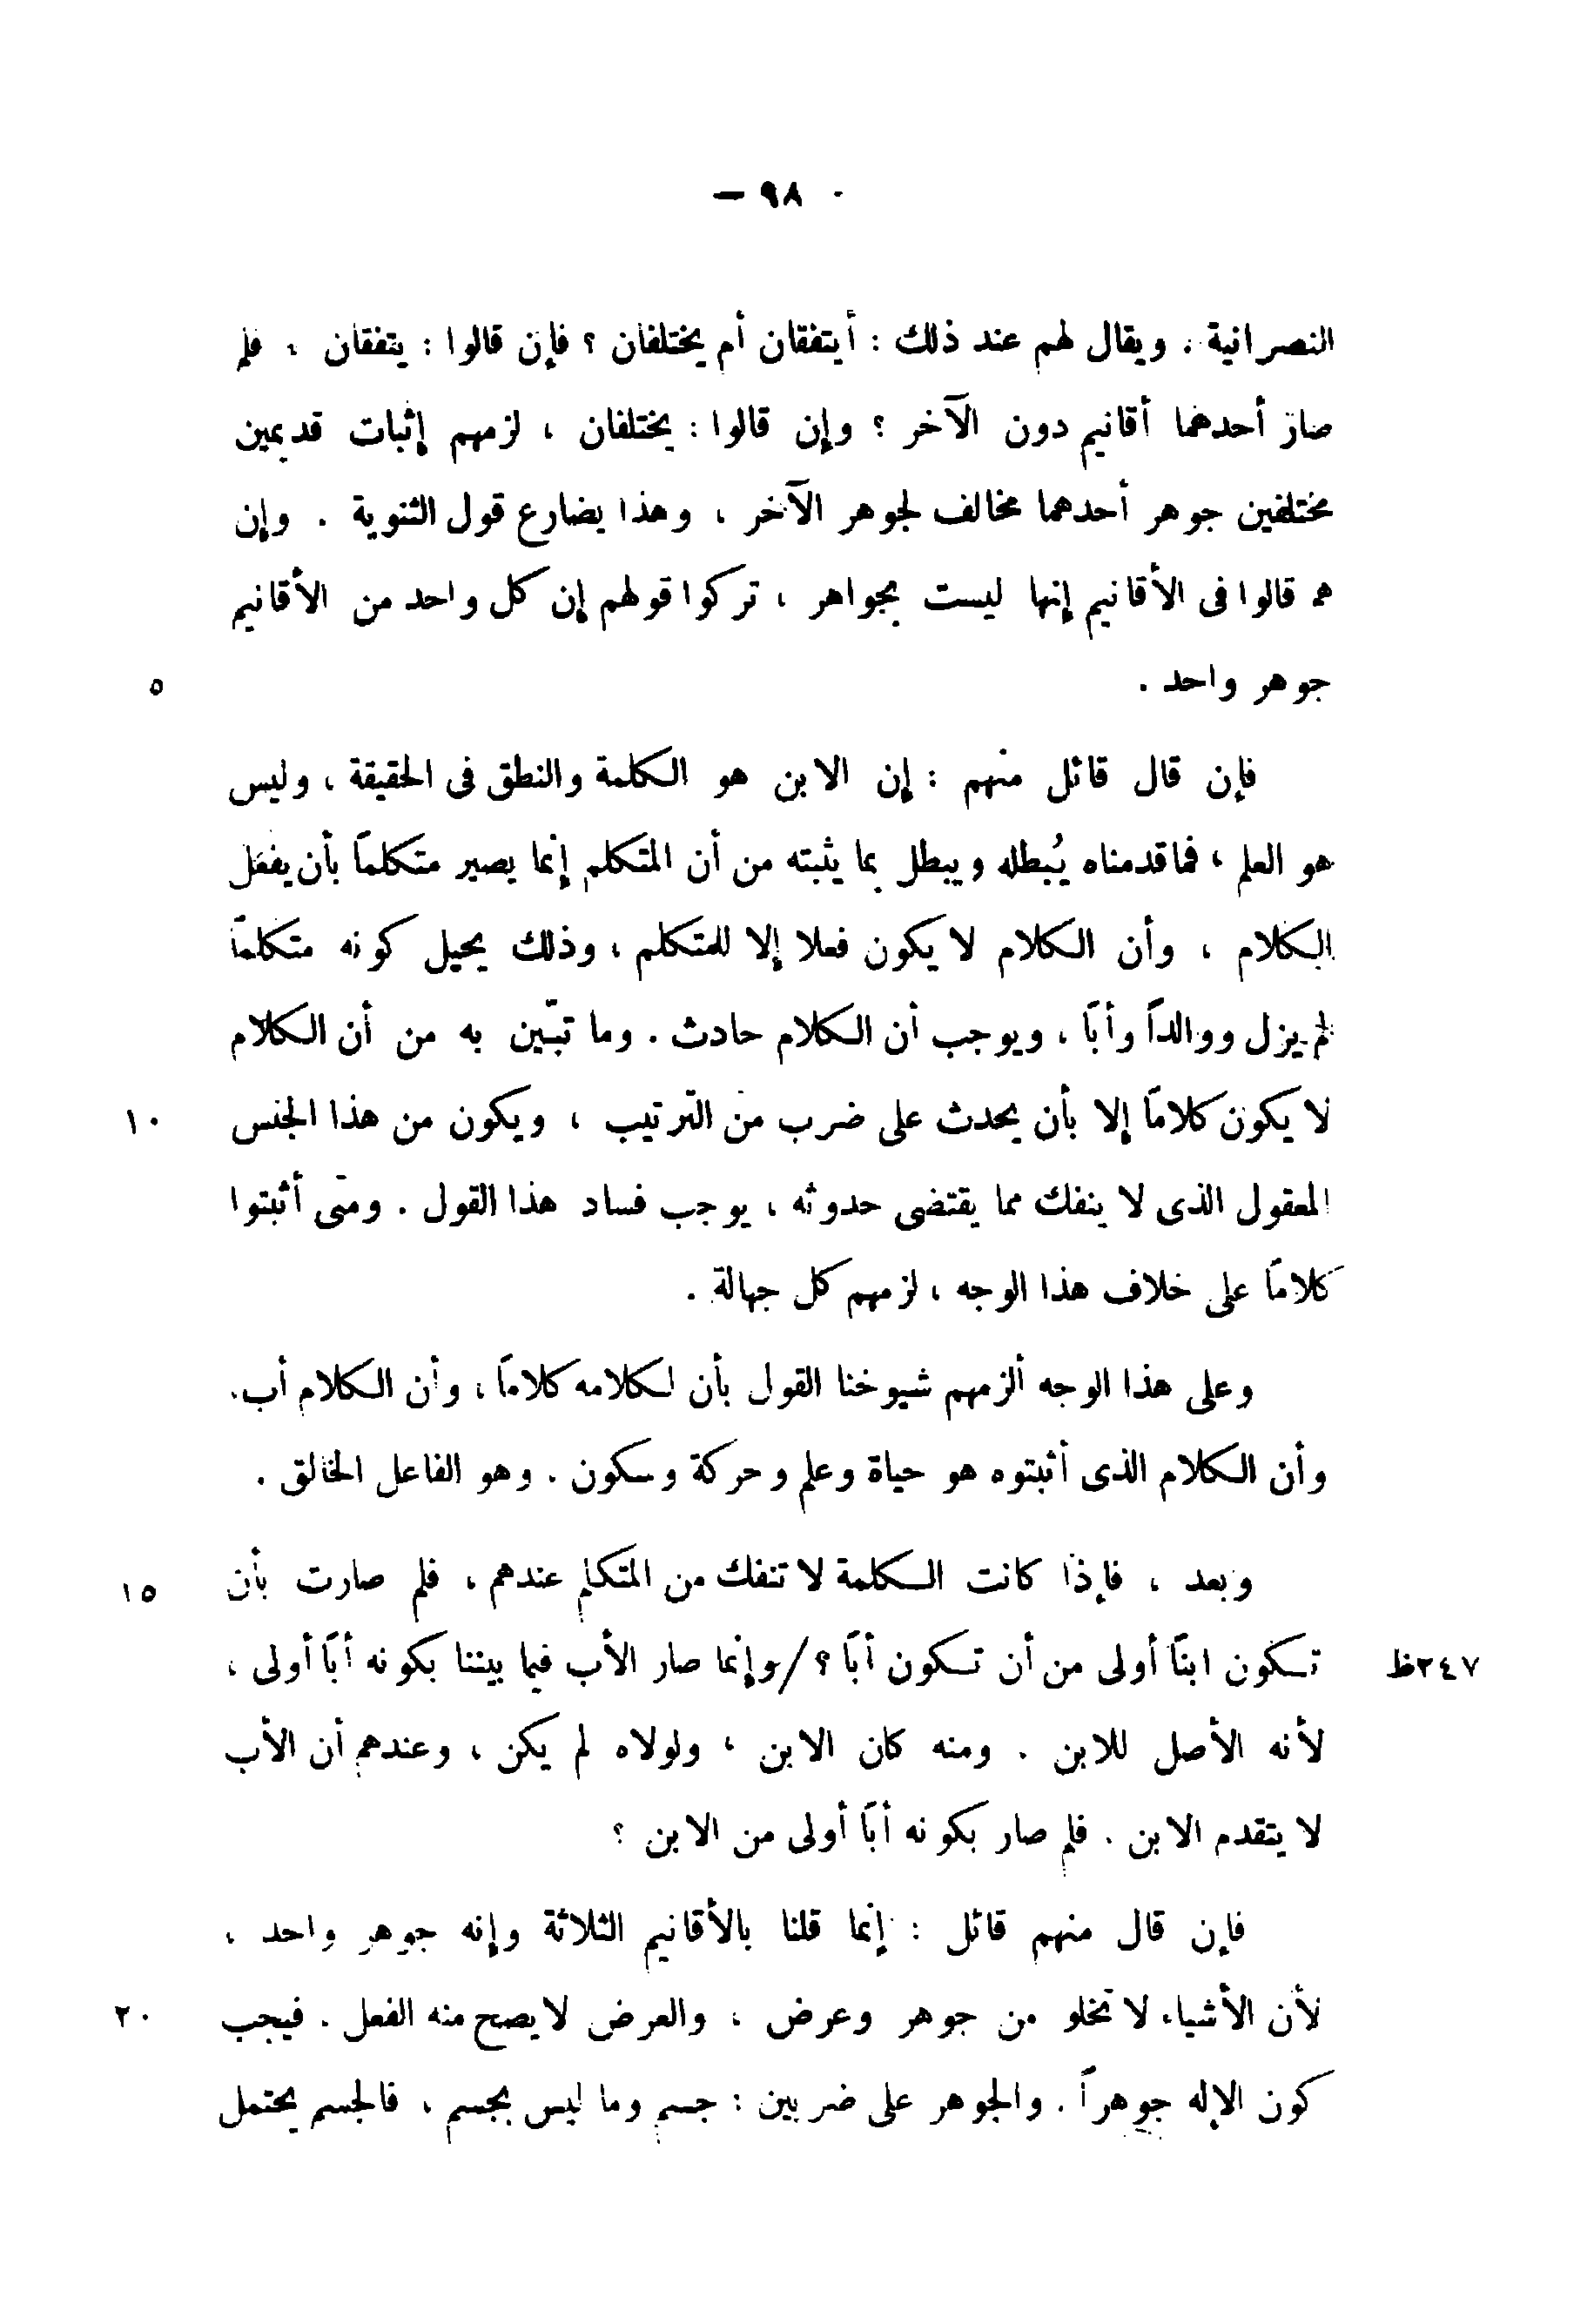 — ٩٨ -
النصرانية . ويقال لهم عند ذلك : أيتفقان أم يختلفان ؟ فإن قالوا : يتفقان ، فلم
صار أحدهما أقانيم دون الآخر ؟ وإن قالوا : يختلفان ، لزمهم إثبات قديمين
مختلفين جوهر أحدهما مخالف لجوهر الآخر ، وهذا يضارع قول الثنوية . وإن
هم قالوا فى الأقانيم إنها ليست بجواهر ، تركوا قولهم إن كل واحد من الأقانيم
جوهر واحد . ٥
فإن قال قائل منهم : إن الابن هو الكلمة والنطق فى الحقيقة ، وليس
هو العلم ، فما قدمناه يُبطله ويبطل بما يثبته من أن المتكلم إنما يصير متكلماً بأن يفعل
الكلام ، وأن الكلام لا يكون فعلا إلا للمتكلم ، وذلك يحيل كونه متكلماً
لم يزل ووالداً وأباً ، ويوجب أن الكلام حادث . وما تبّين به من أن الكلام
لا يكون كلاماً إلا بأن يحدث على ضرب من الترتيب ، ويكون من هذا الجنس ١٠
المعقول الذى لا ينفك مما يقتضى حدوثه ، يوجب فساد هذا القول . ومتى أثبتوا
كلاماً على خلاف هذا الوجه ، لزمهم كل جهالة .
وعلى هذا الوجه ألزمهم شيوخنا القول بأن لكلامه كلاماً ، وأن الكلام أب .
وأن الكلام الذى أثبتوه هو حياة وعلم وحركة وسكون . وهو الفاعل الخالق .
وبعد ، فإذا كانت الكلمة لا تنفك من المتكلم عندهم ، فلم صارت بأن ١٥
٢٤٧ظ تكون ابناً أولى من أن تكون أباً ؟ / وإنما صار الأب فيما بيننا بكونه أباً أولى ،
لأنه الأصل للابن . ومنه كان الابن ، ولولاه لم يكن ، وعندهم أن الأب
لا يتقدم الابن . فلم صار بكونه أباً أولى من الابن ؟
فإن قال منهم قائل : إنما قلنا بالأقانيم الثلاثة وإنه جوهر واحد ،
لأن الأشياء لا تخلو من جوهر وعرض ، والعرض لا يصح منه الفعل . فيجب ٢٠
كون الإله جوهراً . والجوهر على ضربين : جسم وما ليس بجسم ، فالجسم يحتمل